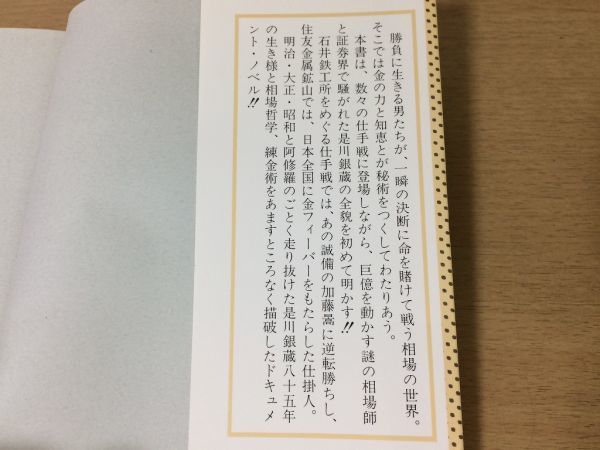 勝負に生きる男たちが、一瞬の決断に命を賭けて戦う相場の世界。
そこでは金の力と知恵とが秘術をつくしてわたりあう。
本書は、数々の仕手戦に登場しながら、巨億を動かす謎の相場師
と証券界で騒がれた是川銀蔵の全貌を初めて明かす!!
石井鉄工所をめぐる仕手戦では、あの誠備の加藤暠に逆転勝ちし、
住友金属鉱山では、日本全国に金フィーバーをもたらした仕掛人。
明治・大正・昭和と阿修羅のごとく走り抜けた是川銀蔵八十五年
の生き様と相場哲学、練金術をあますところなく描破したドキュメ
ント・ノベル!!